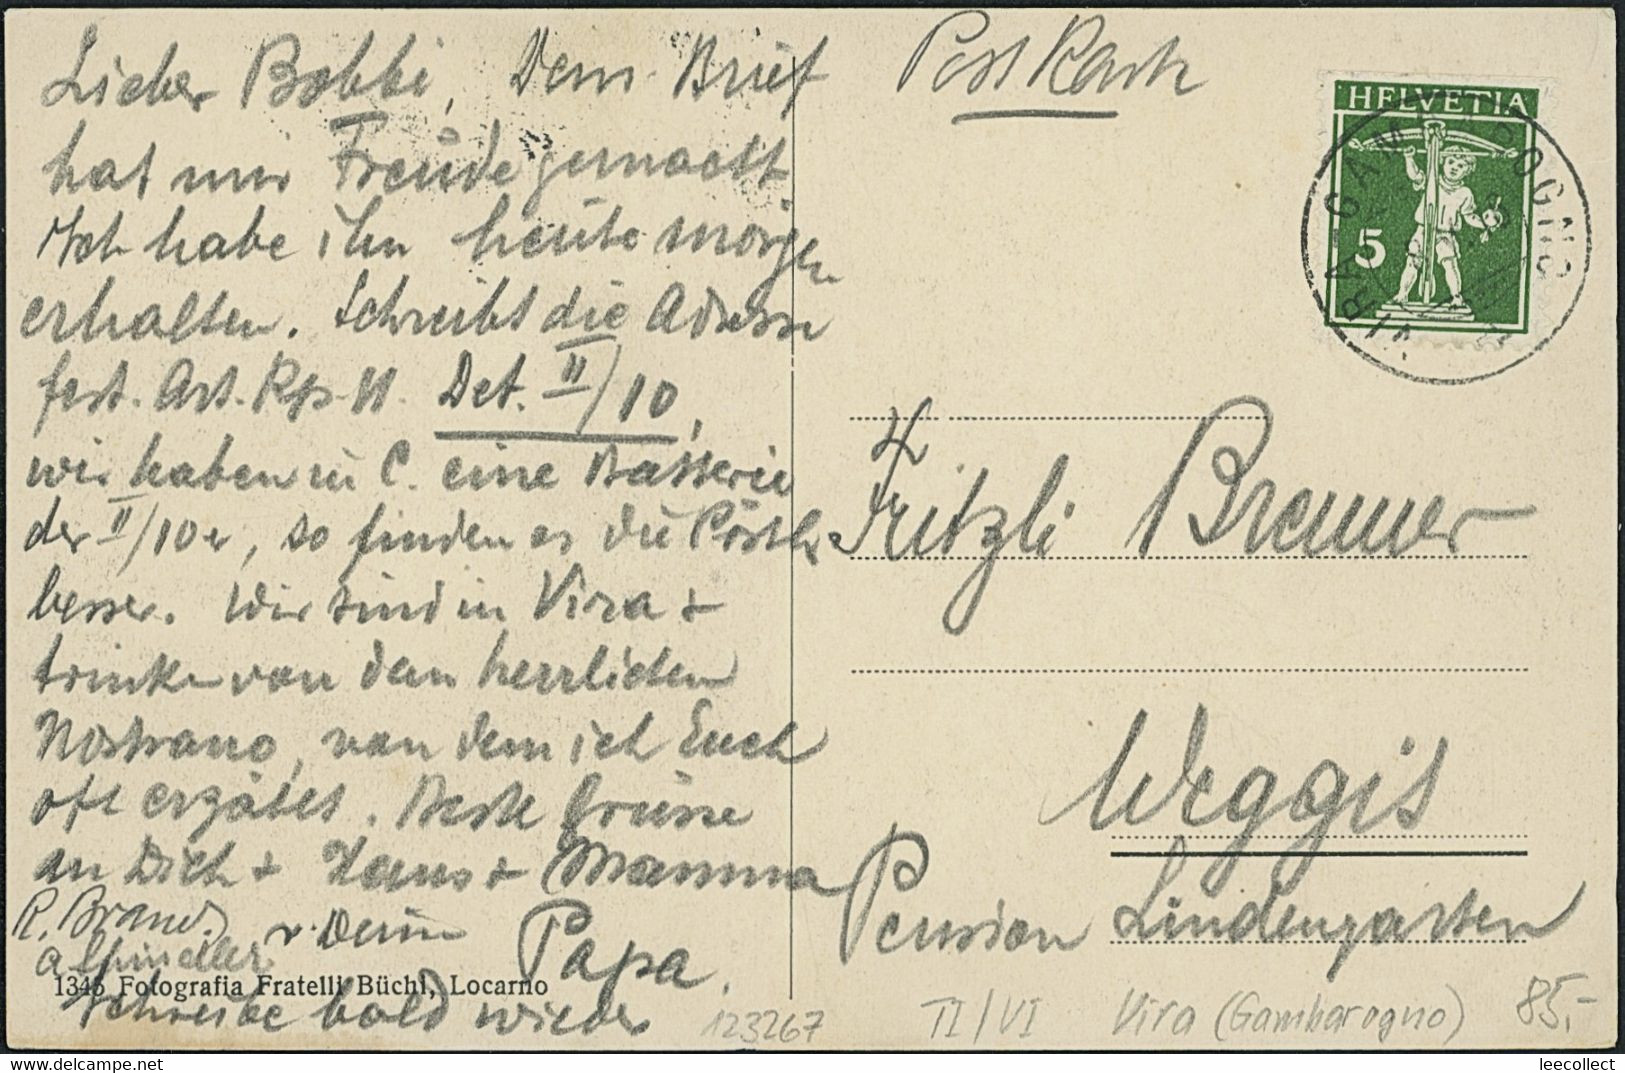 Lieber Bobbi, Dein Brief
hat mir Freude gemacht
Ich habe ihn heute morgen
erhalten. Schreibt die Adresse
fest. Art. Rgt. 11. Det. II/10,
wir haben in C. eine Batterie
der II/10er, so finden es die Pöstler
besser. Wir sind in Vira +
trinken von dem herrlichen
Nostrano, von dem ich Euch
oft erzählt. Beste Grüsse
an Dich + Hans + Mamma
v. Deim Papa.
R. Brand.
1345 Fotografia Fratelli Büchi, Locarno
Schreibe bald wieder
Postkarte
HELVETIA
5
VIRA GAMBAROGNO
Fritzli Brenner
Weggis
Pension Lindengarten
123267 II/VI Vira (Gambarogno) 85.-
© www.delcampe.net
leecollect